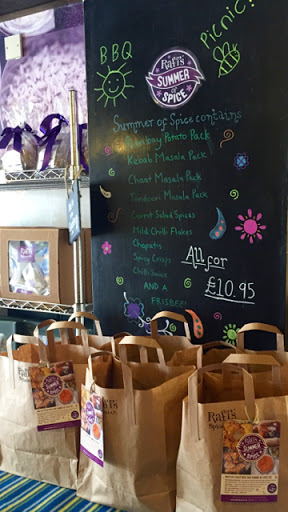 BBQ
Picnic!
Rafi's
SUMMER
OF
SPICE
Summer of Spice contains
Bombay Potato Pack
Kebab Masala Pack
Chaat Masala Pack
Tandoori Masala Pack
Carrot Salad Spices
Mild Chilli Flakes
Chapatis
Spicy Crisps
Chilli Sauce
AND A
FRISBEE!
All for
£10.95
Rafi's
Rafi's
SUMMER
SPICE